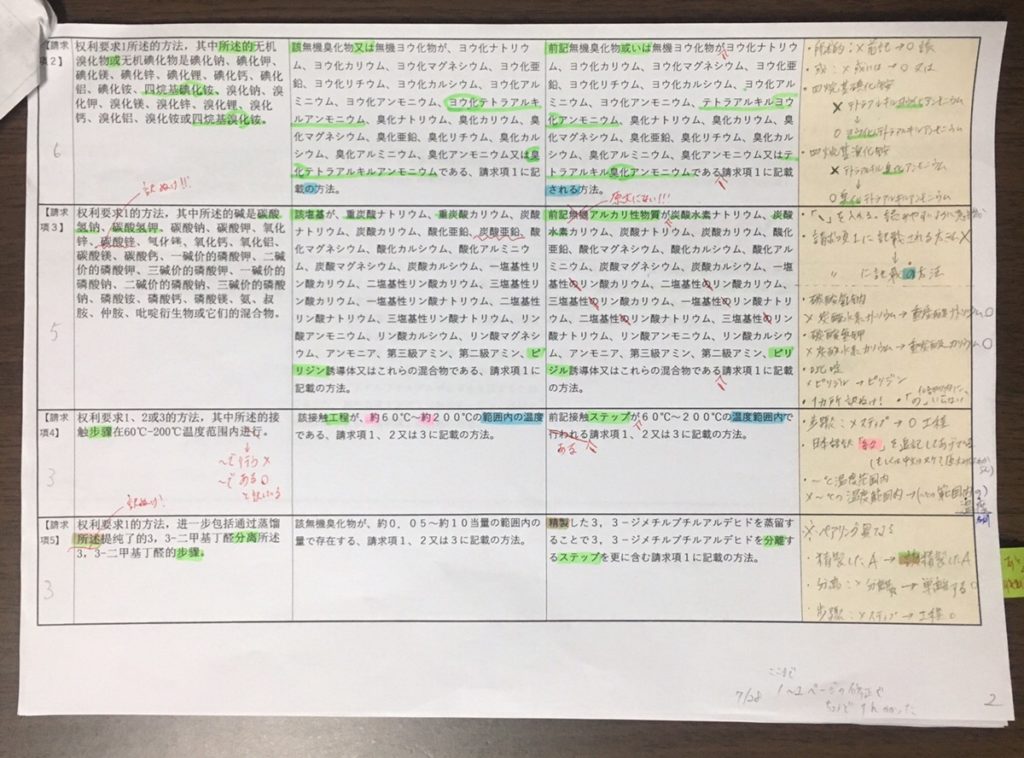 【請求項2】
权利要求1所述的方法，其中所述的无机
溴化物或无机碘化物是碘化钠、碘化钾、
碘化镁、碘化锌、碘化锂、碘化钙、碘化
铝、碘化铵、四烷基碘化铵、溴化钠、溴
化钾、溴化镁、溴化锌、溴化锂、溴化
钙、溴化铝、溴化铵或四烷基溴化铵。
6
該無機臭化物又は無機ヨウ化物が、ヨウ化ナトリウ
ム、ヨウ化カリウム、ヨウ化マグネシウム、ヨウ化亜
鉛、ヨウ化リチウム、ヨウ化カルシウム、ヨウ化アル
ミニウム、ヨウ化アンモニウム、ヨウ化テトラアルキ
ルアンモニウム、臭化ナトリウム、臭化カリウム、臭
化マグネシウム、臭化亜鉛、臭化リチウム、臭化カル
シウム、臭化アルミニウム、臭化アンモニウム又は臭
化テトラアルキルアンモニウムである、請求項1に記
載の方法。
前記無機臭化物或いは無機ヨウ化物がヨウ化ナトリウ
ム、ヨウ化カリウム、ヨウ化マグネシウム、ヨウ化亜
鉛、ヨウ化リチウム、ヨウ化カルシウム、ヨウ化アル
ミニウム、ヨウ化アンモニウム、テトラアルキルヨウ
化アンモニウム、臭化ナトリウム、臭化カリウム、臭
化マグネシウム、臭化亜鉛、臭化リチウム、臭化カル
シウム、臭化アルミニウム、臭化アンモニウム又はテ
トラアルキル臭化アンモニウムである、請求項1に記載
される方法。
・所述的：×前記→○該
・或：×或いは→○又は
・四烷基碘化铵
×テトラアルキルヨウ化アンモニウム
↓
○ヨウ化テトラアルキルアンモニウム
・四烷基溴化铵
×テトラアルキル臭化アンモニウム
↓
○臭化テトラアルキルアンモニウム
訳ぬけ!!!
原文にない!!!
【請求項3】
权利要求1的方法，其中所述的碱是碳酸
氢钠、碳酸氢钾、碳酸钠、碳酸钾、氧化
锌、碳酸锌、氧化镁、氧化钙、氧化铝、
碳酸镁、碳酸钙、一碱价的磷酸钾、二碱
价的磷酸钾、三碱价的磷酸钾、一碱价的
磷酸钠、二碱价的磷酸钠、三碱价的磷酸
钠、磷酸铵、磷酸钙、磷酸镁、氨、叔
胺、仲胺、吡啶衍生物或它们的混合物。
5
該塩基が、重炭酸ナトリウム、重炭酸カリウム、炭酸
ナトリウム、炭酸カリウム、酸化亜鉛、炭酸亜鉛、酸
化マグネシウム、酸化カルシウム、酸化アルミニウ
ム、炭酸マグネシウム、炭酸カルシウム、一塩基性リ
ン酸カリウム、二塩基性リン酸カリウム、三塩基性リ
ン酸カリウム、一塩基性リン酸ナトリウム、二塩基性
リン酸ナトリウム、三塩基性リン酸ナトリウム、リン
酸アンモニウム、リン酸カルシウム、リン酸マグネシ
ウム、アンモニア、第三級アミン、第二級アミン、ピ
リジン誘導体又はこれらの混合物である、請求項1に
記載の方法。
前記無機アルカリ性物質が炭酸水素ナトリウム、炭酸
水素カリウム、炭酸ナトリウム、炭酸カリウム、酸化
亜鉛、酸化マグネシウム、酸化カルシウム、酸化アル
ミニウム、炭酸マグネシウム、炭酸カルシウム、一塩
基性のリン酸カリウム、二塩基性のリン酸カリウム、
三塩基性のリン酸カリウム、一塩基性のリン酸ナトリ
ウム、二塩基性のリン酸ナトリウム、三塩基性のリン
酸ナトリウム、リン酸アンモニウム、リン酸カルシウ
ム、リン酸マグネシウム、アンモニア、第三級アミ
ン、第二級アミン、ピリジル誘導体又はこれらの混合
物である、請求項1に記載の方法。
・請求項1に記載される方法×
↓
〃 に記載の方法
・碳酸氢钠
×炭酸水素ナトリウム→重炭酸ナトリウム○
・碳酸氢钾
×炭酸水素カリウム→重炭酸カリウム○
・吡啶
×ピリジル→ピリジン
・1カ所訳ぬけ!
【請求項4】
权利要求1、2或3的方法，其中所述的接
触步骤在60℃-200℃温度范围内进行。
3
～で行う×
～である○
該接触工程が、約60℃～約200℃の範囲内の温度
である、請求項1、2又は3に記載の方法。
前記接触ステップが60℃～200℃の温度範囲内で
行われる請求項1、2又は3に記載の方法。
ある
・步骤：×ステップ→○工程
・～℃温度范围内
訳ぬけ!
【請求項5】
权利要求1的方法，进一步包括通过蒸馏
所述提纯了的3，3-二甲基丁醛分离所述
3，3-二甲基丁醛的步骤。
3
該無機臭化物が、約0．05～約10当量の範囲内の量
で存在する、請求項1、2又は3に記載の方法。
精製した3，3－ジメチルブチルアルデヒドを蒸留す
ることで3，3－ジメチルブチルアルデヒドを分離す
るステップを更に含む請求項1に記載の方法。
※ペアリング異なる
・精製したA→該精製したA
・分离：×分離→単離する○
・步骤：×ステップ→工程○
7/28
1～2ページの修正で
2